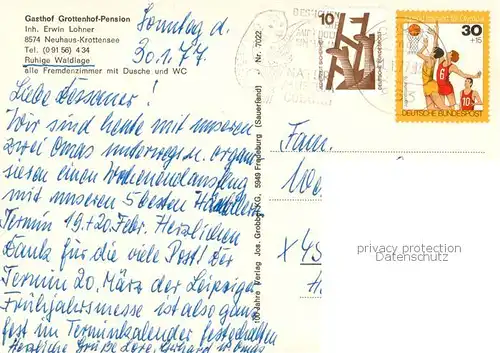 Gasthof Grottenhof-Pension
Inh. Erwin Lohner
8574 Neuhaus-Krottensee
Tel. (0 91 56) 4 34
Ruhige Waldlage
alle Fremdenzimmer mit Dusche und WC
Sonntag d.
30.1.77.
Liebe Dessauer!
Wir sind heute mit unseren
zwei Omas unterwegs u. organi
sieren einen Wochenendausflug
mit unseren 5 besten Händlern
Termin 19.+20. Febr. Herzlichen
Dank für die viele Post! Der
Termin 20. März der Leipziger
Frühjahrsmesse ist also ganz
fest im Terminkalender festgehalten
Herzliche Grüße Lore, Gerhard u. Omas
100 Jahre Verlag Jos. Grobbel KG, 5949 Fredeburg (Sauerland) Nr. 7022
10
DEUTSCHE BUNDESPOST
30
+15
DEUTSCHE BUNDESPOST
Fam.
privacy protection
Datenschutz